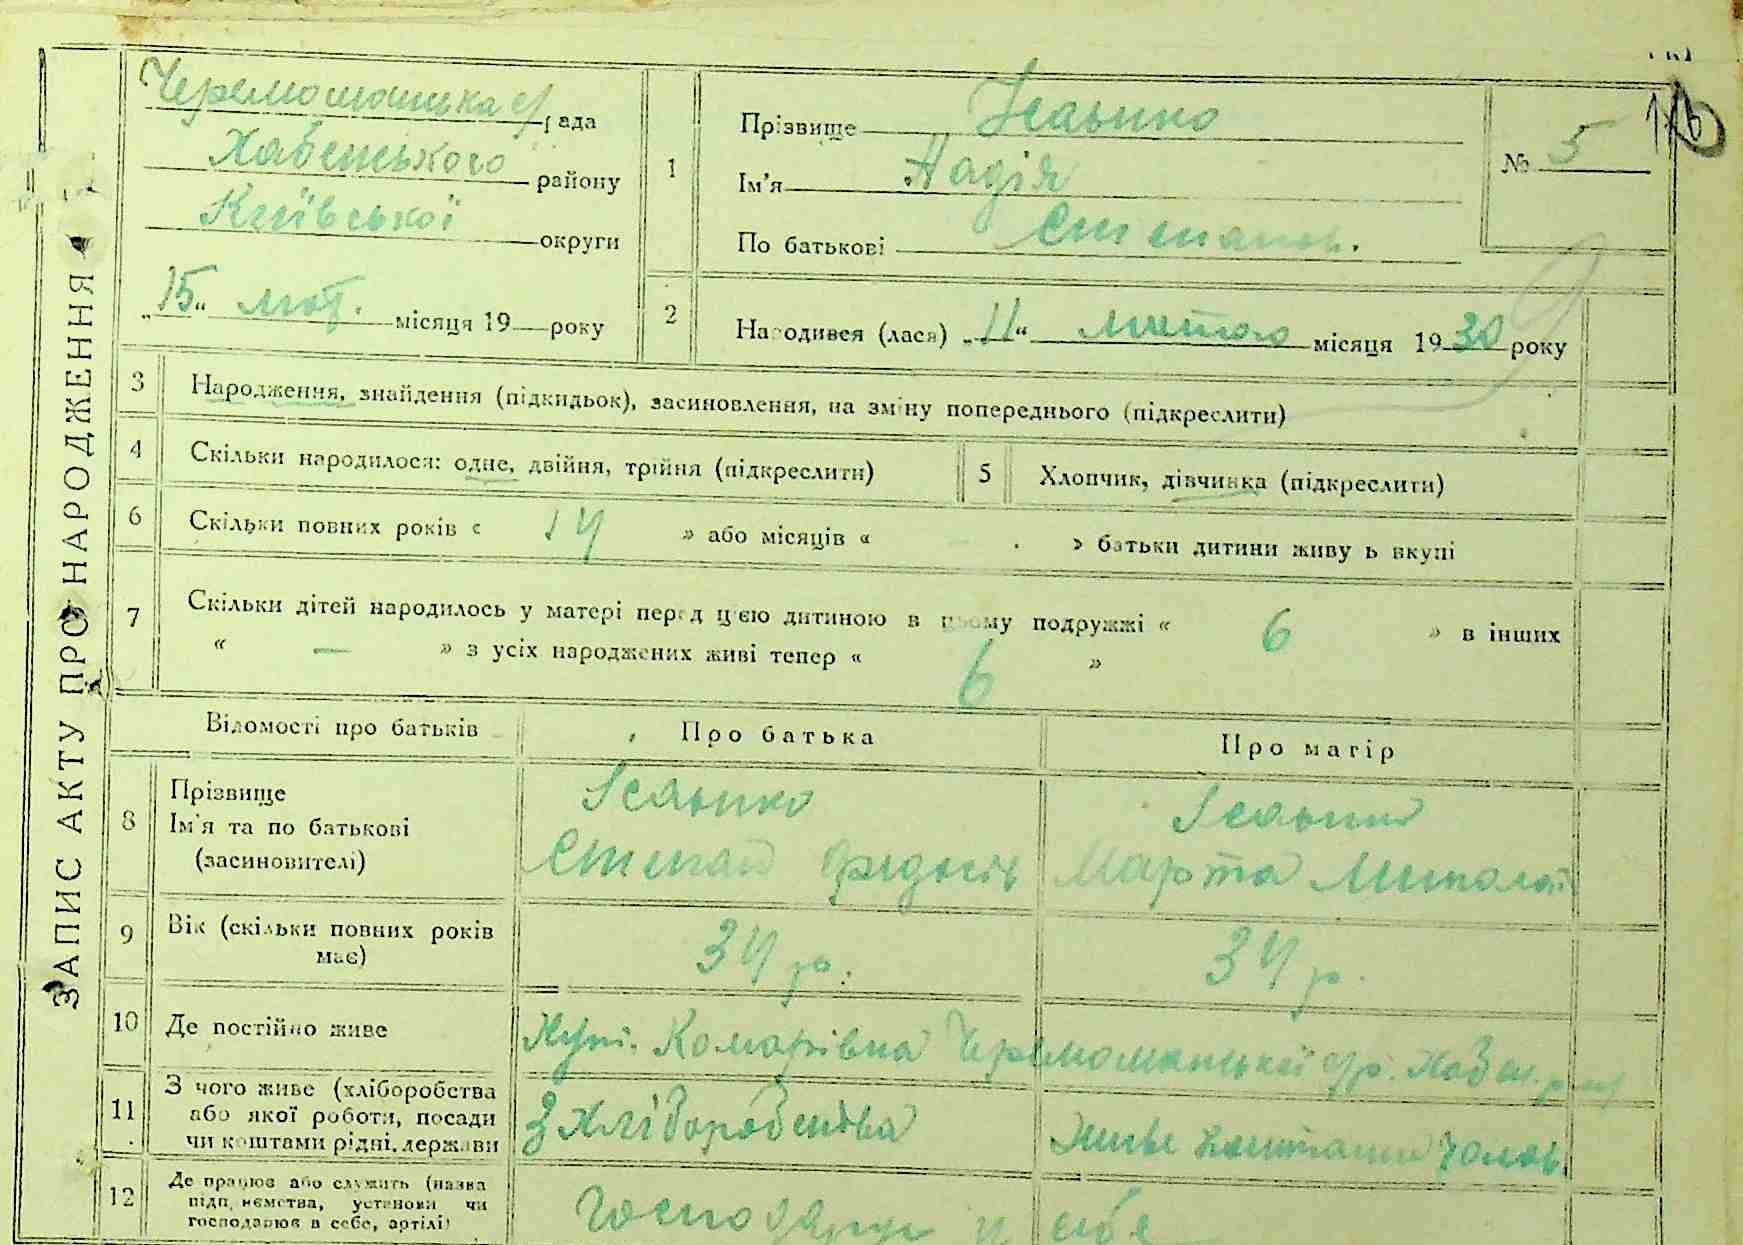 ЗАПИС АКТУ ПРО НАРОДЖЕННЯ
Черемошанська с/рада
Хабенського району
Київської округи
„15“ лют. місяця 19 року
1
Прізвище Ісаєнко
Ім'я Надія
По батькові Степанов.
№ 5
2
Народився (лася) „11“ лютого місяця 1930 року
3 Народження, знайдення (підкидьок), засиновлення, на зміну попереднього (підкреслити)
4 Скільки народилося: одне, двійня, трійня (підкреслити)
5 Хлопчик, дівчинка (підкреслити)
6 Скільки повних років « 14 » або місяців « — » батьки дитини живуть вкупі
7 Скільки дітей народилось у матері перед цією дитиною в цьому подружжі « 6 » в інших
« — » з усіх народжених живі тепер « 6 »
Відомості про батьків Про батька Про матір
8 Прізвище
Ім'я та по батькові
(засиновителі)
Ісаєнко
Степан Федосів
Ісаєнко
Марта Миколаї
9 Вік (скільки повних років
має)
34 р. 34 р.
10 Де постійно живе
Комарівка Черемошанської с/р. Хабен.
11 З чого живе (хліборобства
або якої роботи, посади
чи коштами рідні, держави
З хліборобства
живе коштами чолов.
12 Де працює або служить (назва
підприємства, установи чи
господарює в себе, артілі)
Господарює у себе